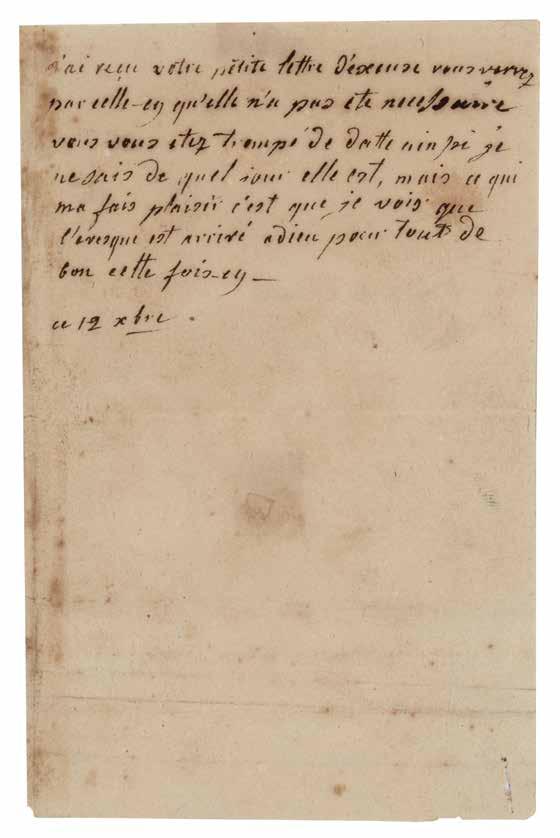 j'ai reçu votre petite lettre d'excuse vous verrez
par celle-cy qu'elle n'a pas ete necessaire
vous vous etez trompé de datte ainsi je
ne sais de quel jour elle est, mais ce qui
ma fais plaisir c'est que je vois que
l'evesque est arrivé adieu pour tout de
bon cette fois-cy —
ce 12 xbre .